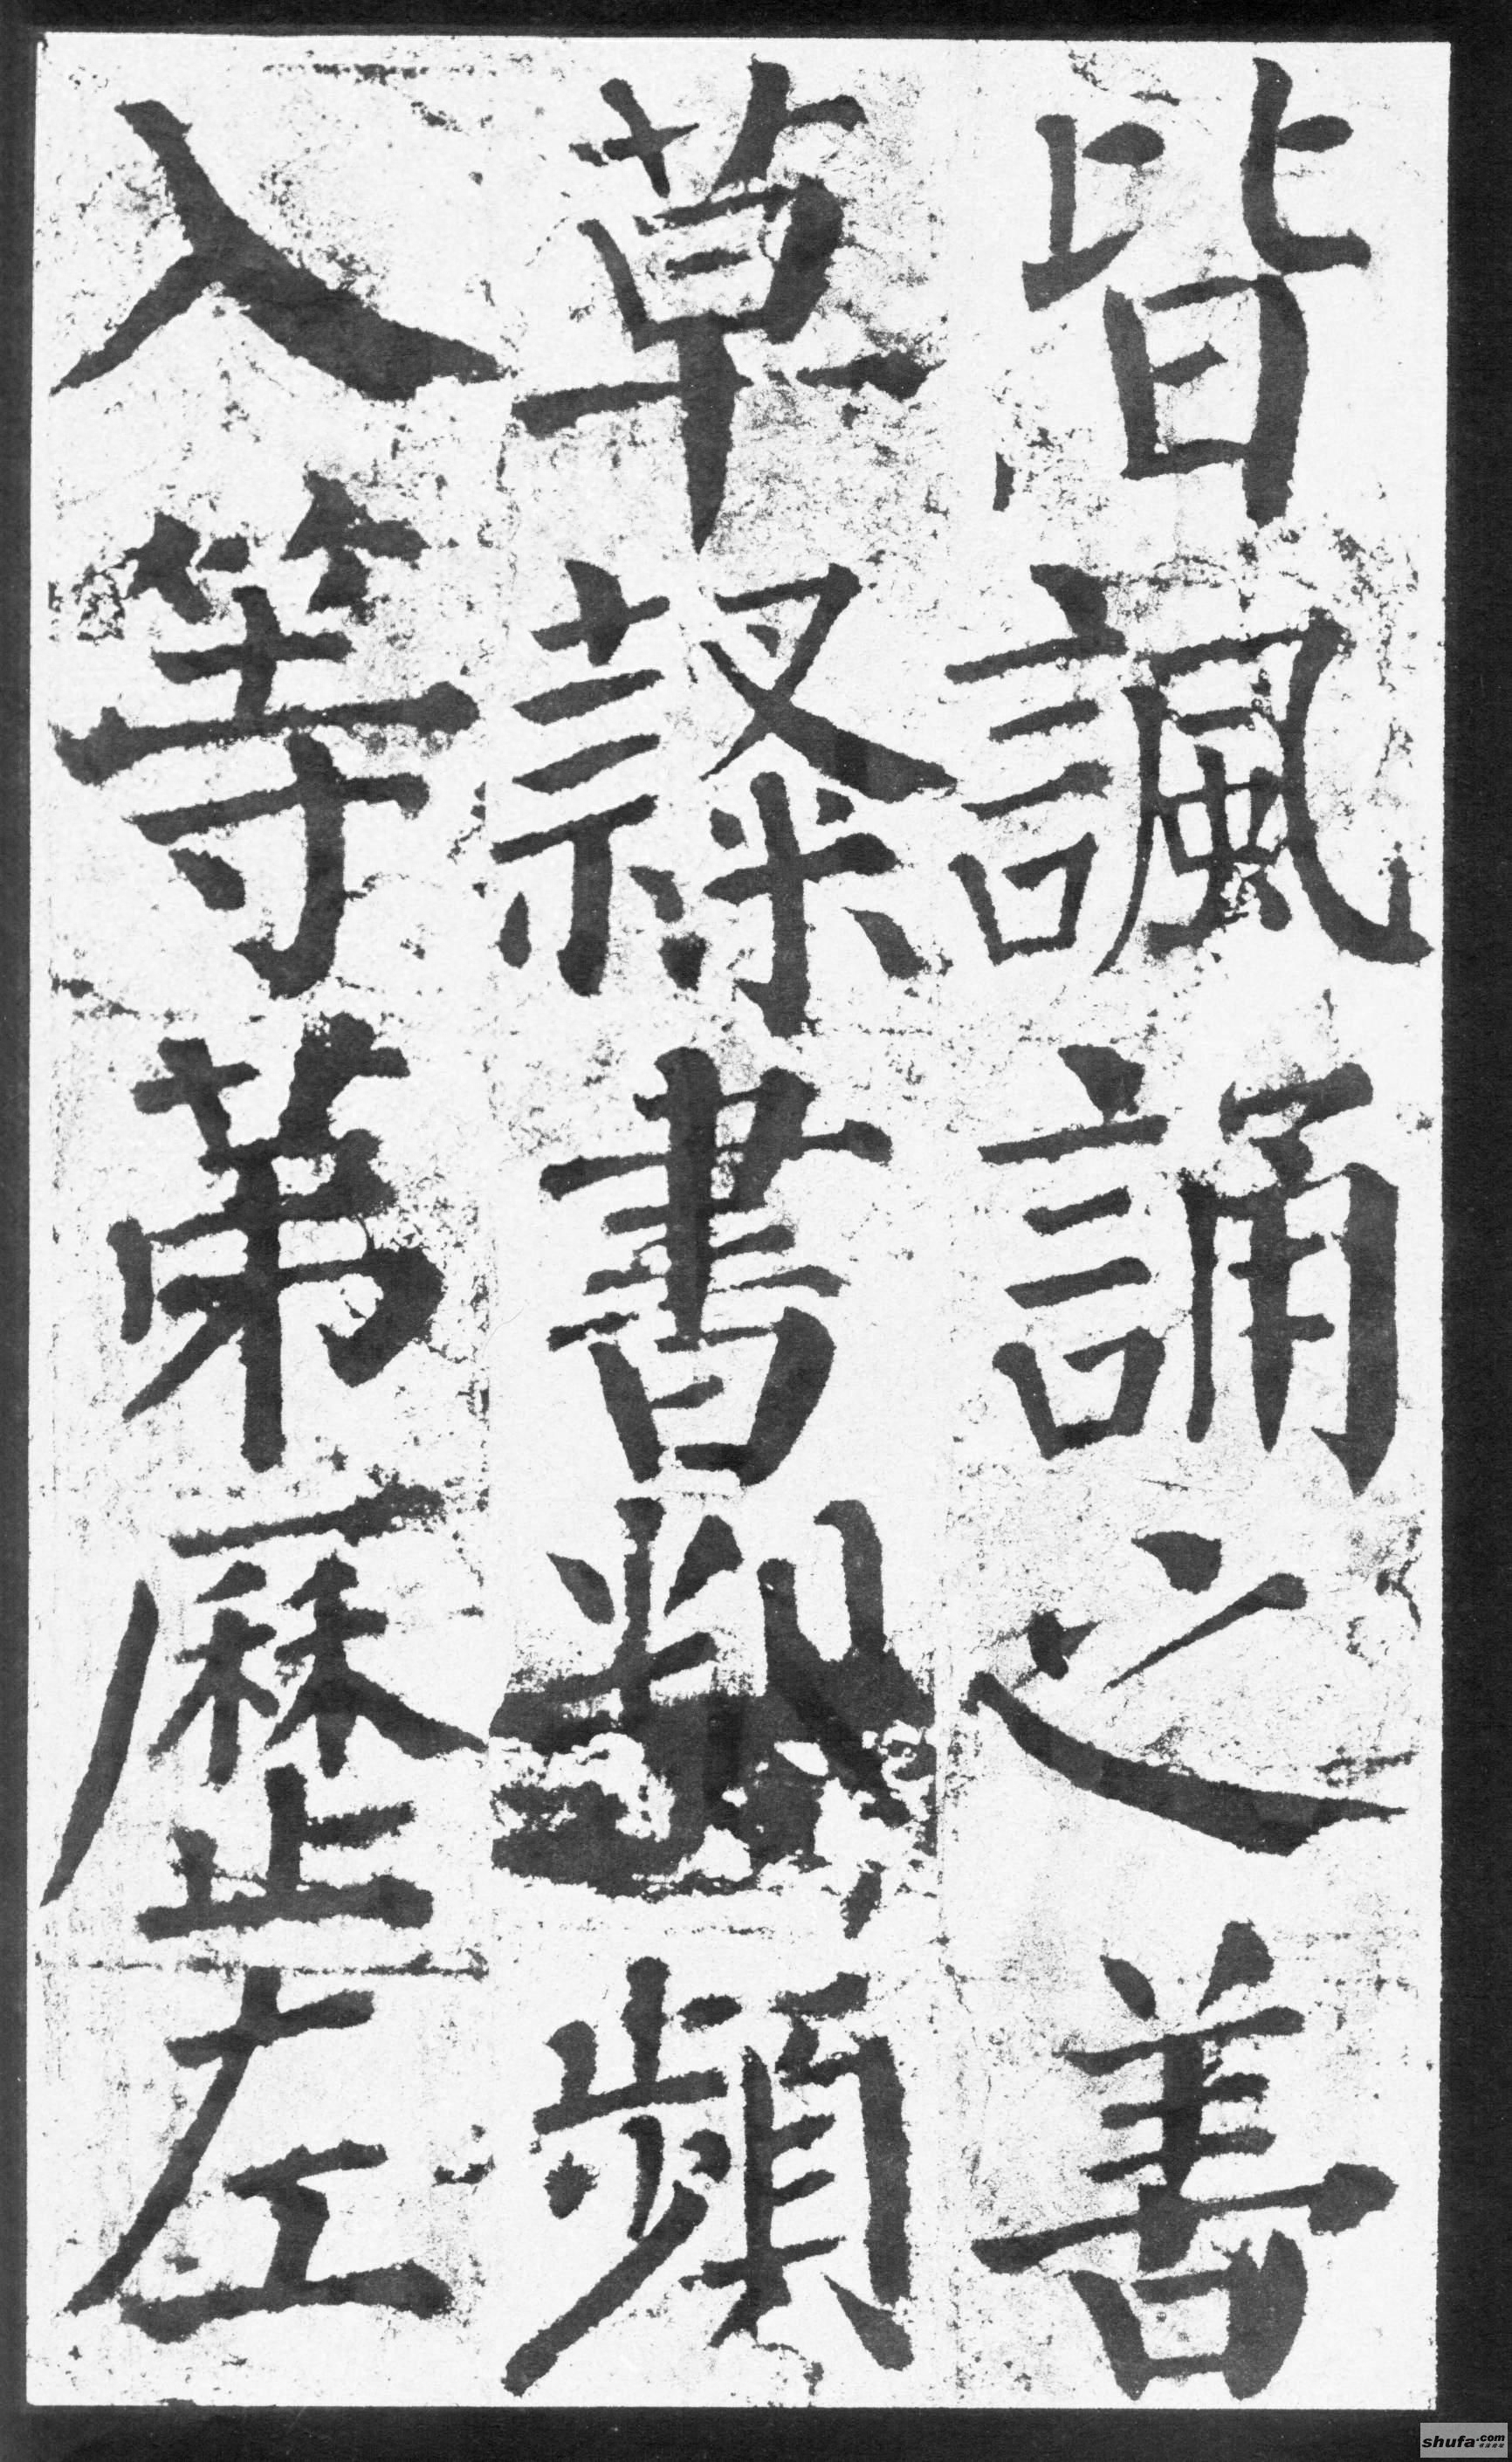 皆諷誦之善
草隸書判頻
入等第歷左
shufa.com